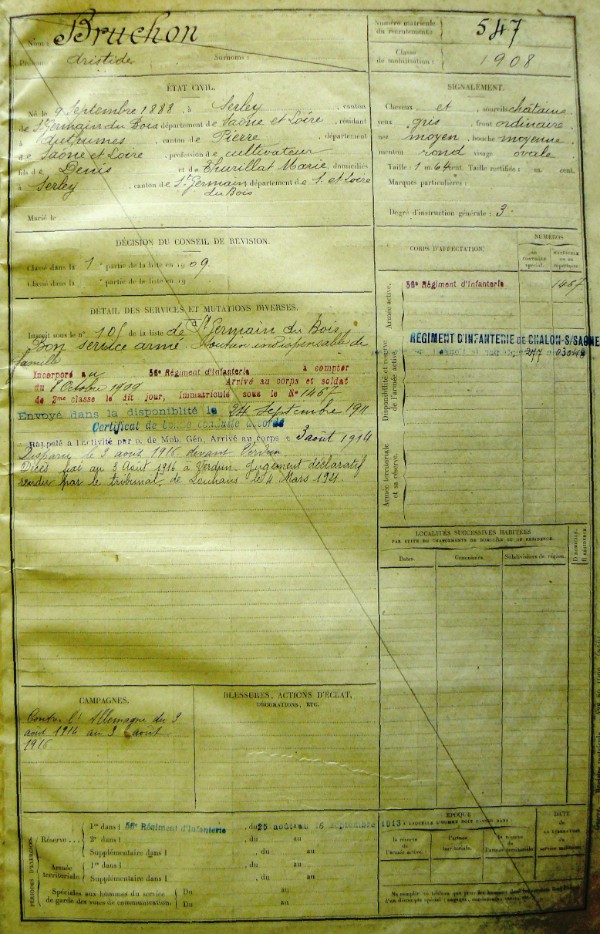 Nom : Bruchon
Prénoms : Aristide Surnoms :
Numéro matricule du recrutement : 547
Classe de mobilisation : 1908
ÉTAT CIVIL.
Né le 9 Septembre 1888, à Serley, canton
de St Germain du Bois département de Saône et Loire, résidant
à Authumes, canton de Pierre, département
de Saône et Loire, profession de cultivateur
fils de Denis et de Thurillat Marie domiciliés
à Serley, canton de St Germain du Bois département de S. et Loire
Marié le
SIGNALEMENT.
Cheveux et sourcils châtains
yeux gris front ordinaire
nez moyen bouche moyenne
menton rond visage ovale
Taille : 1 m. 64 cent. Taille rectifiée : m. cent.
Marques particulières :
Degré d'instruction générale : 3.
DÉCISION DU CONSEIL DE RÉVISION.
Classé dans la 1 partie de la liste en 1909.
Classé dans la partie de la liste en 19
CORPS D'AFFECTATION.
NUMÉROS
au contrôle spécial.
matricule ou au répertoire.
Armée active.
56e Régiment d'Infanterie 1467
Disponibilité et réserve de l'armée active.
RÉGIMENT D'INFANTERIE DE CHALON-S/SAÔNE
Armée territoriale et sa réserve.
DÉTAIL DES SERVICES ET MUTATIONS DIVERSES.
Inscrit sous le n° de la liste de St Germain du Bois
Bon service armé. Soutien indispensable de
famille
Incorporé au 56e Régiment d'Infanterie à compter
du 8 Octobre 1909 Arrivé au corps et soldat
de 2me classe le dit jour, immatriculé sous le No 1467
Envoyé dans la disponibilité le 24 Septembre 1911
Certificat de bonne conduite accordé
Rappelé à l'activité par o. de Mob. Gén. Arrivé au corps le 3 août 1914
Disparu le 3 août 1916 devant Verdun
Décès fixé au 3 Août 1916 à Verdun. Jugement déclaratif
rendu par le tribunal de Louhans le 4 Mars 1921.
LOCALITÉS SUCCESSIVES HABITÉES
PAR SUITE DE CHANGEMENTS DE DOMICILE OU DE RÉSIDENCE.
Dates. Communes. Subdivisions de région. D domicile. R résidence.
CAMPAGNES.
Contre l'Allemagne du 3
août 1914 au 3 août
1916
BLESSURES, ACTIONS D'ÉCLAT,
DÉCORATIONS, ETC.
PÉRIODES D'EXERCICES.
Réserve
1re dans l 56e Régiment d'Infanterie, du 25 août au septembre 1913
2e dans l , du au
Supplémentaire dans l , du au
Armée territoriale
1re dans l , du au
Supplémentaire dans l , du au
Spéciales aux hommes du service
de garde des voies de communication.
Du au
Du au
ÉPOQUE
À LAQUELLE L'HOMME DOIT PASSER DANS :
la réserve de l'armée active.
l'armée territoriale.
la réserve de l'armée territoriale.
DATE